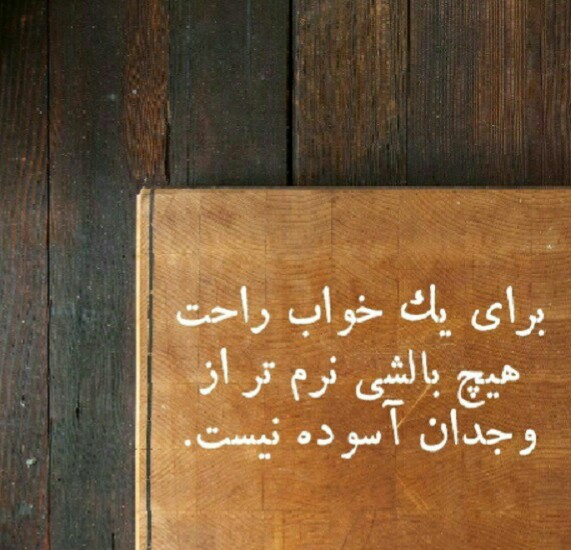 برای یك خواب راحت
هیچ بالشی نرم تر از
وجدان آسوده نیست.